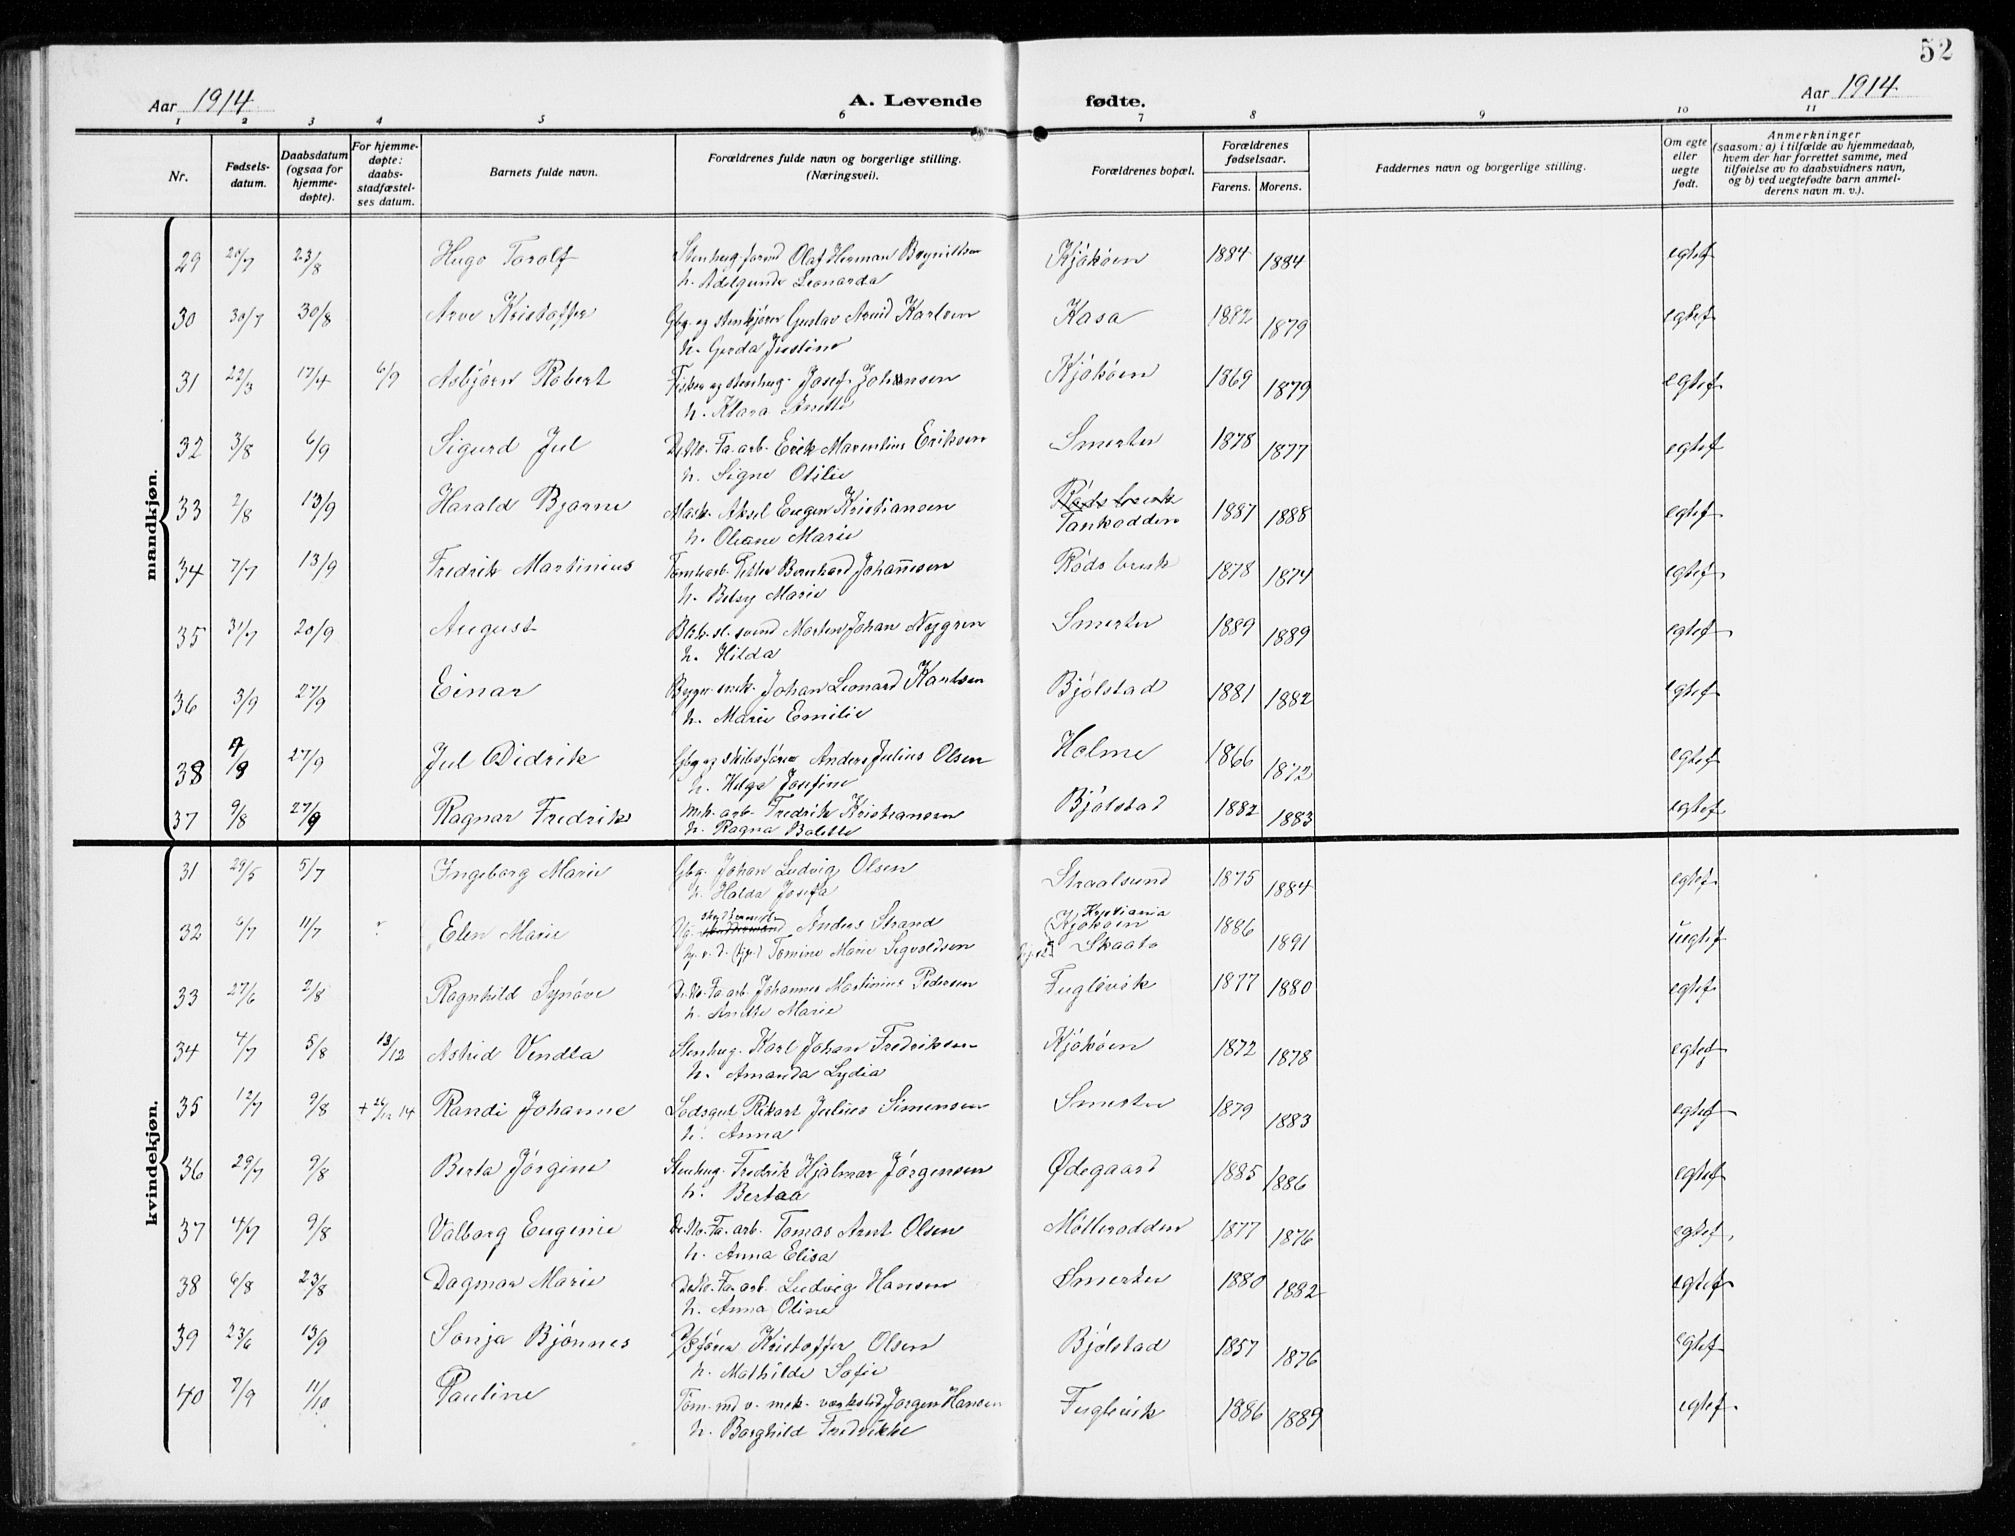 52
Aar 1914
A. Levende
fødte.
Aar 1914
1 2 3 4 5 6 7 8 9 10 11
Nr.
Fødsels-
datum.
Daabsdatum
(ogsaa for
hjemme-
døpte).
For hjemme-
døpte:
daabs-
stadfæstel-
ses datum.
Barnets fulde navn.
Forældrenes fulde navn og borgerlige stilling.
(Næringsvei).
Forældrenes bopæl.
Forældrenes
fødselsaar.
Farens. Morens.
Faddernes navn og borgerlige stilling.
Om egte
eller
uegte
født.
Anmerkninger
(saasom: a) i tilfælde av hjemmedaab,
hvem der har forrettet samme, med
tilføielse av to daabsvidners navn,
og b) ved uegtefødte barn anmel-
derens navn m. v.).
mandkjøn.
29 20/7 23/8 Hugo Torolf Stenhug. formd Olaf Herman Bryniltsen Kjøkøen 1884 1884 egtef
h. Adelgunde Leonarda
30 30/7 30/8 Arve Kristoffer Gbg. og stenkjører Gustav Arvid Karlsen Kasa 1882 1879 egtef
h. Gerda Justine
31 22/3 17/4 6/9 Asbjørn Robert Fisker og stenhug. Josef Johansen Kjøkøen 1869 1879 egtef
h. Klara Anette
32 3/8 6/9 Sigurd Jul De No. Fa. arb. Erik Marentius Eriksen Smertu 1878 1877 egtef
h. Signe Otilie
33 2/8 13/9 Harald Bjarne Mask. Aksel Eugen Kristiansen Røds bruk 1887 1888 egtef
h. Oleane Marie Tankodden
34 7/7 13/9 Fredrik Martinius Tomtearb. Petter Bernhard Johannesen Røds bruk 1878 1874 egtef
h. Betsy Marie
35 31/7 20/9 August Blik. sl. svend Morten Johan Nygren Smertu 1889 1889 egtef
h. Hilda
36 3/9 27/9 Einar Bygn. snek. Johan Leonard Karlsen Bjølstad 1881 1882 egtef
h. Marie Emilie
38 7/9 27/9 Jul Didrik Gbg og skibsfører Anders Julius Olsen Holme 1866 1872 egtef
h. Helga Josefine
37 9/8 27/9 Ragnar Fredrik Mek. arb. Fredrik Kristiansen Bjølstad 1882 1883 egtef
h. Ragna Bolette
kvindekjøn.
31 29/5 5/7 Ingeborg Marie Gbg. Johan Ludvig Olsen Straalsund 1875 1884 egtef
h. Halda Josefa
32 6/7 11/7 Elen Marie Anders Strand Kristiania 1886 1891 uegtef
Tomine Marie Sigvoldsen Kjøkøen
Skaato
33 27/6 2/8 Ragnhild Synøve De No. Fa. arb. Johannes Martinius Pedersen Fuglevik 1877 1880 egtef
h. Anette Marie
34 4/7 5/8 13/12 Astrid Vendla Stenhug. Karl Johan Fredriksen Kjøkøen 1872 1878 egtef
h. Amanda Lydia
35 12/7 9/8 + 26/12 14 Randi Johanne Lodsgut Rikart Julius Simensen Smertu 1879 1883 egtef
h. Anna
36 29/7 9/8 Berta Jørgine Stenhug. Fredrik Hjalmar Jørgensen Ødegaard 1885 1886 egtef
h. Bertaa
37 4/7 9/8 Valborg Eugenie De. No. Fa. arb. Tomas Arnt Olsen Møllerodden 1877 1876 egtef.
h. Anna Elisa
38 6/8 23/8 Dagmar Marie De No. Fa. arb. Ludvig Hansen Smertu 1880 1882 egtef
h. Anna Oline
39 23/6 13/9 Sonja Bjønnes Kristoffer Olsen Bjølstad 1857 1876 egtef
h. Mathilde Sofie
40 7/9 11/10 Pauline Tom. md v. mek. værksted Jørgen Hansen Fuglevik 1886 1889 egtef.
h. Borghild Fredrikke